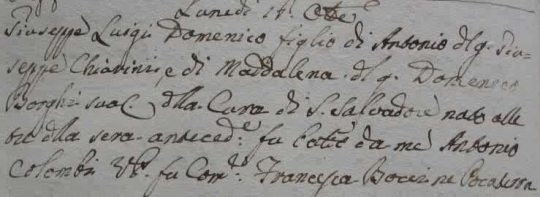 Lunedi 14 Otte
Giuseppe Luigi Domenico figlio di Antonio dl q. Giu=
seppe Chiarini, e di Maddalena dl q. Domenico
Borghi sua C. dlla Cura di S. Salvadore nato alle
ore dlla sera anteced.e fu batt.o da me Antonio
Colombi V.o fu Com.e Francesca